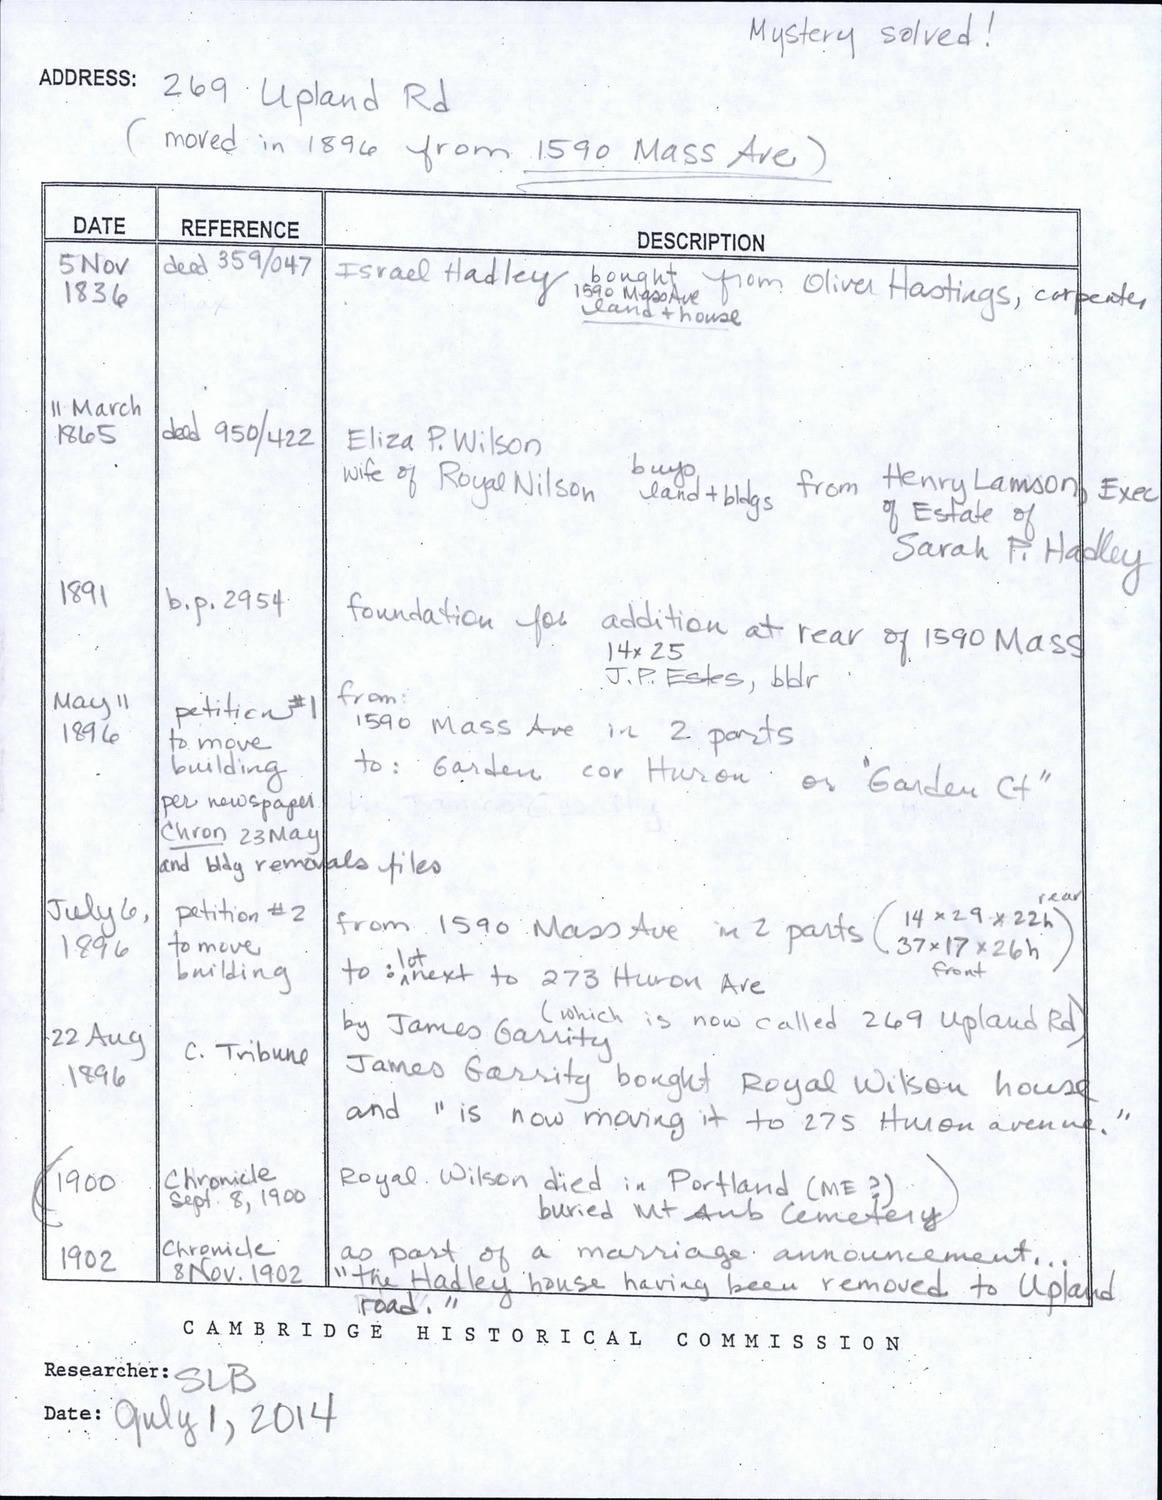 Mystery solved!
ADDRESS: 269 Upland Rd
(moved in 1896 from 1590 Mass Ave)
DATE REFERENCE DESCRIPTION
5 Nov 1836 deed 359/047 Israel Hadley bought 1590 Mass Ave land + house from Oliver Hastings, carpenter
11 March 1865 deed 950/422 Eliza P. Wilson
wife of Royal Nilson buys land + bldgs from Henry Lamson, Exec
of Estate of
Sarah P. Hadley
1891 b.p. 2954 foundation for addition at rear of 1590 Mass
14 x 25
J.P. Estes, bldr
May 11 1896 petition #1 to move building per newspaper Chron 23 May and bldg removals files
from:
1590 Mass Ave in 2 parts
to: Garden cor Huron or "Garden Ct"
July 6, 1896 petition #2 to move building
from 1590 Mass Ave in 2 parts (14 x 29 x 22h rear
37 x 17 x 26h front)
to: lot next to 273 Huron Ave
(which is now called 269 Upland Rd)
by James Garrity
22 Aug 1896 C. Tribune James Garrity bought Royal Wilson house
and "is now moving it to 275 Huron avenue."
(1900 Chronicle Sept. 8, 1900 Royal Wilson died in Portland (ME?)
buried Mt Aub Cemetery)
1902 Chronicle 8 Nov. 1902 as part of a marriage announcement...
"the Hadley house having been removed to Upland
road."
CAMBRIDGE HISTORICAL COMMISSION
Researcher: SLB
Date: July 1, 2014